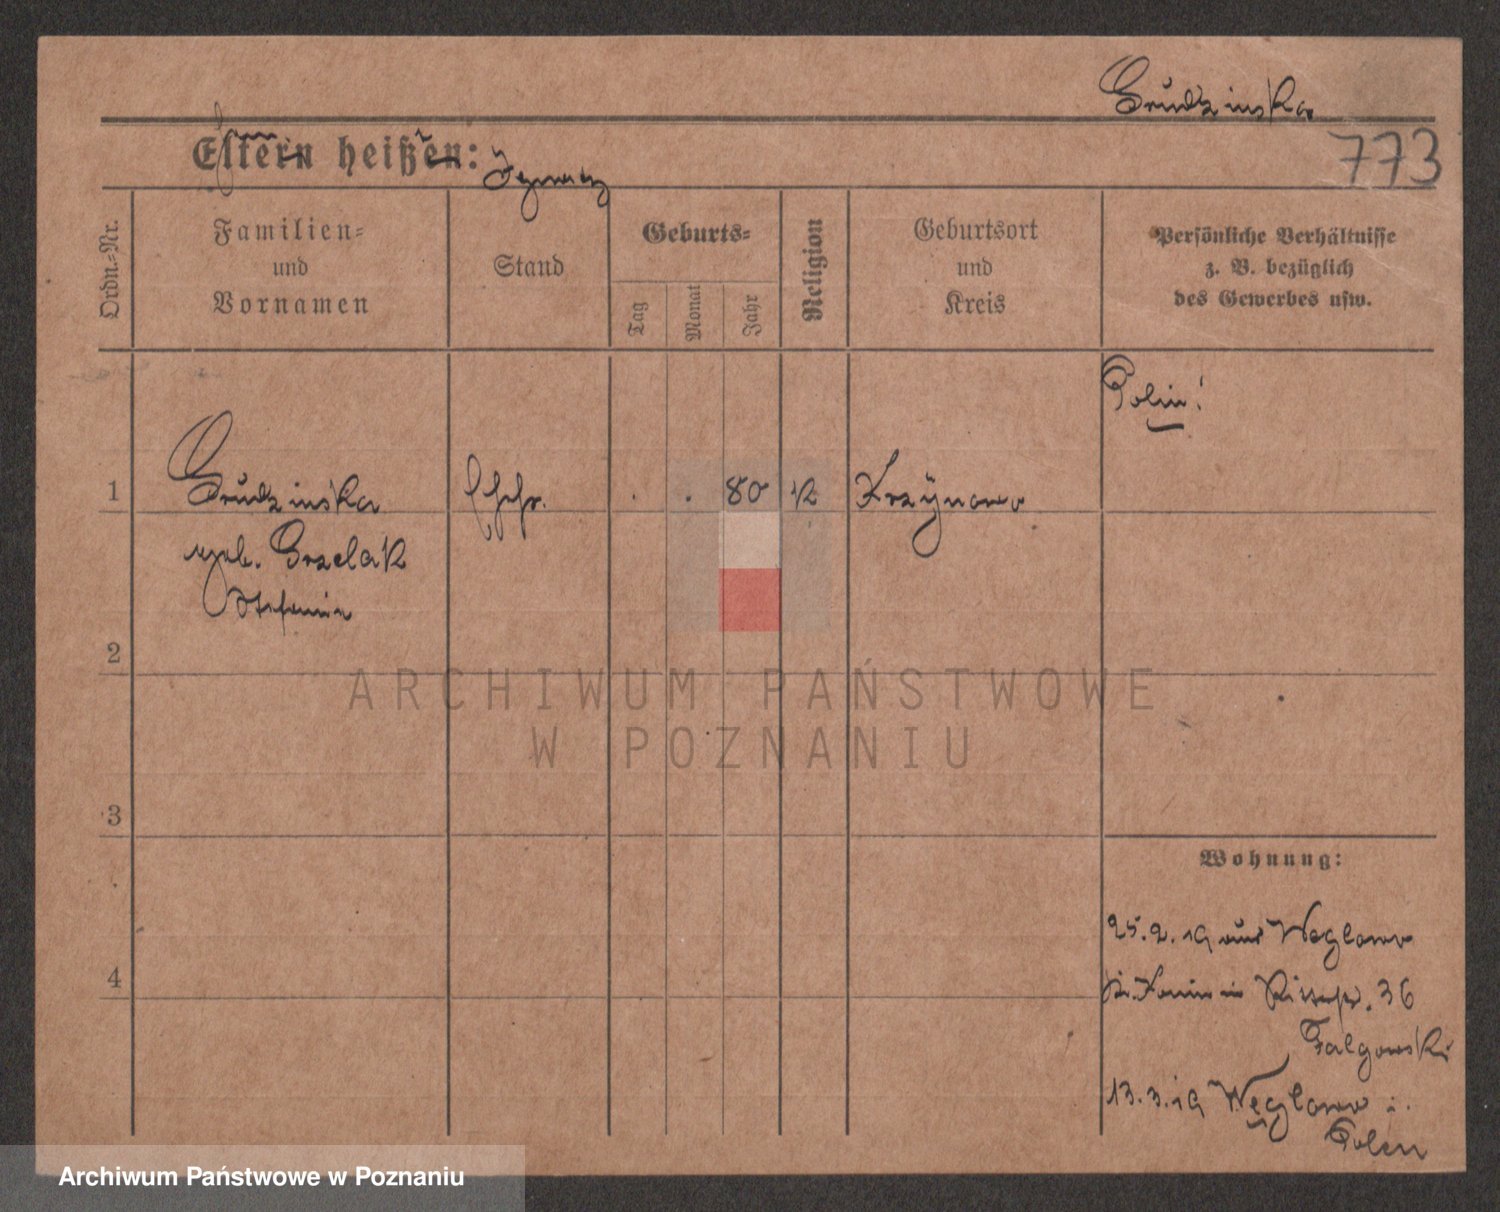 Grudzinska
773
Eltern heißen: Ignacy
Ordn.-Nr.
Familien-
und
Vornamen
Stand
Geburts-
Tag
Monat
Jahr
Religion
Geburtsort
und
Kreis
Persönliche Verhältnisse
z. B. bezüglich
des Gewerbes usw.
Polin!
1
Grudzinska
geb. Grzelak
Stefania
Ehefr.
80
K
Krzynowo
2
3
4
Wohnung:
25.2.19 aus Weglowo
Kr. Konin in 36
Falgowski
13.3.19 Węglowo i.
Polen
ARCHIWUM PAŃSTWOWE
W POZNANIU
Archiwum Państwowe w Poznaniu